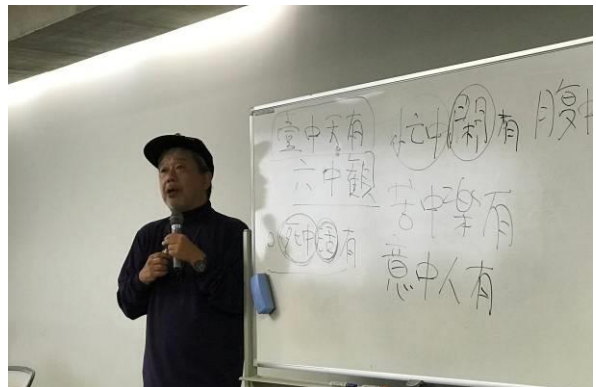 壺中天有
六中観
死中活有
忙中閑有
苦中楽有
意中人有
腹中